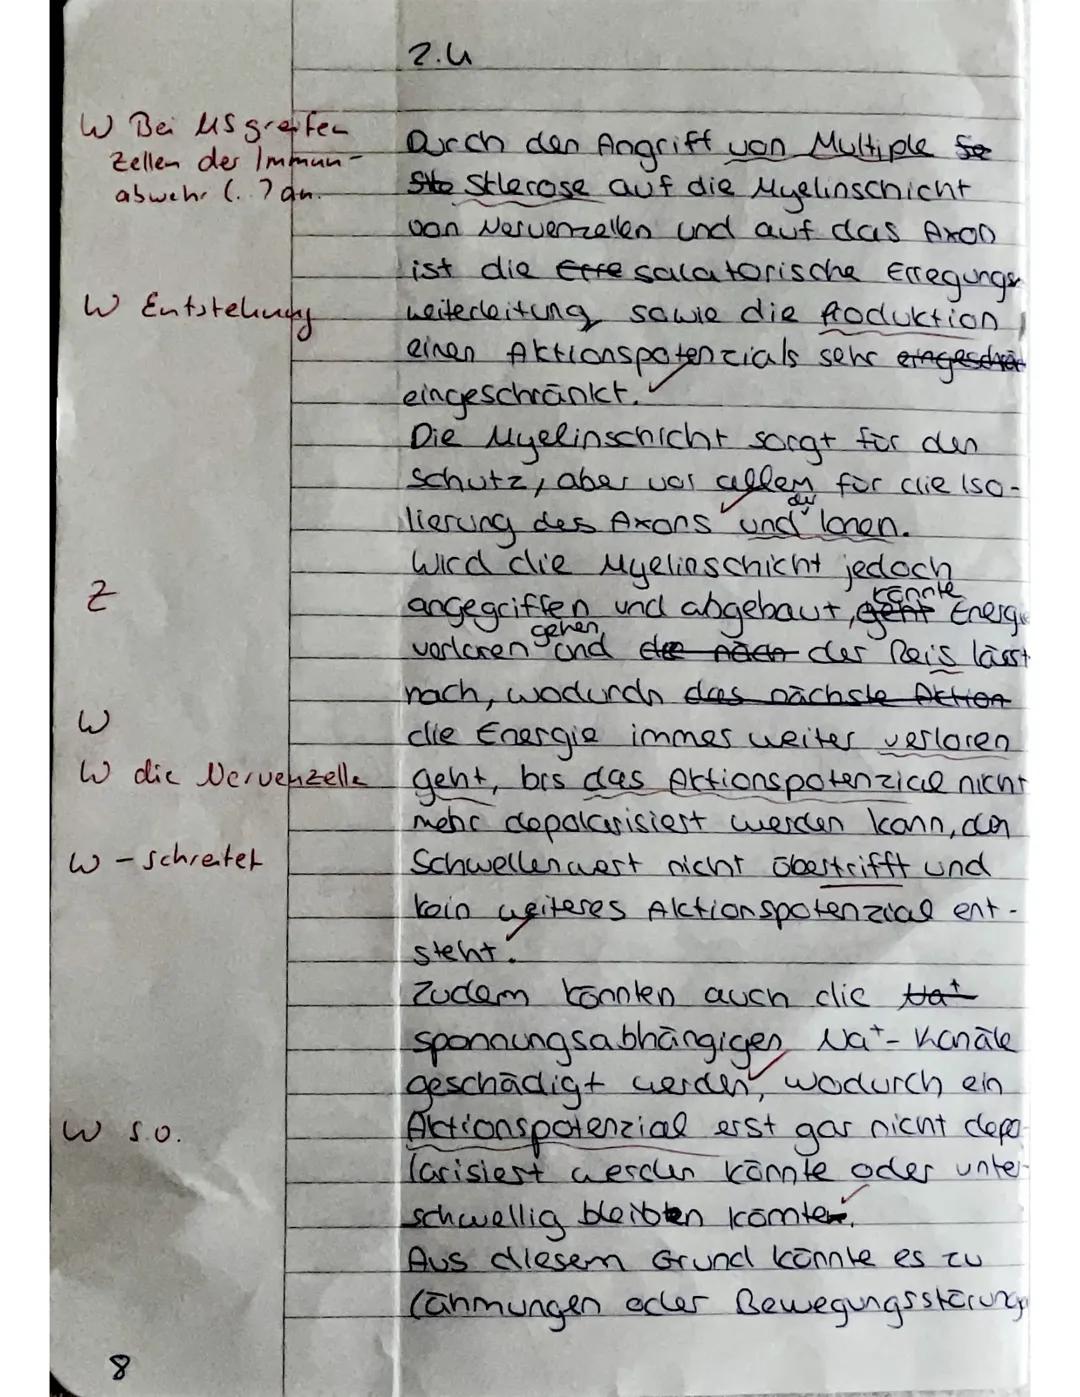 2.4
W Bei MS greifen
Zellen der Immun-
abwehr (..) an.
Durch den Angriff von Multiple Se
Skle Sklerose auf die Myelinschicht
von Nervenzellen und auf das Axon
ist die Erre salatorische Erregungs
W Entstehung
weiterleitung sowie die Produktion
einen Aktionspotenzials sehr eingeschrän
eingeschränkt.
Die Myelinschicht sorgt für den
Schutz, aber vor allem für die Iso-
lierung des Axons und der Ionen.
Wird die Myelinschicht jedoch
Z
angegriffen und abgebaut, geht könnte Energie
verloren gehen und die nach der Reis lässt
nach, wodurch das nächste Aktion
W
die Energie immer weiter verloren
W die Nervenzelle
geht, bis das Aktionspotenzial nicht
mehr depolarisiert werden kann, den
W -schreitet
Schwellenwert nicht übertrifft und
kein weiteres Aktionspotenzial ent-
steht.
Zudem könnten auch die Na+
spannungsabhängigen Na+-Kanäle
geschädigt werden, wodurch ein
W s.o.
Aktionspotenzial erst gar nicht depo-
larisiert werden könnte oder unter-
schwellig bleiben könnte.
Aus diesem Grund könnte es zu
Lähmungen oder Bewegungsstörunge
8